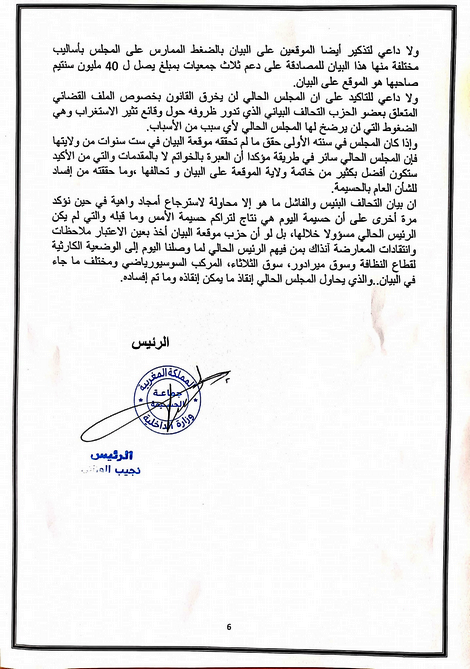 ولا داعي لتذكير أيضا الموقعين على البيان بالضغط الممارس على المجلس بأساليب
مختلفة منها هذا البيان للمصادقة على دعم ثلاث جمعيات بمبلغ يصل ل 40 مليون سنتيم
صاحبها هو الموقع على البيان.
ولا داعي للتاكيد على ان المجلس الحالي لن يخرق القانون بخصوص الملف القضائي
المتعلق بعضو الحزب التحالف البيئي الذي تدور ظروفه حول وقائع تثير الاستغراب وهي
الضغوط التي لن يرضخ لها المجلس الحالي لأي سبب من الأسباب.
وإذا كان المجلس في سنته الأولى حقق ما لم تحققه موقعة البيان في ست سنوات من ولايتها
فإن المجلس الحالي سائر في طريقة مؤكدا أن العبرة بالخواتم لا بالمقدمات والتي من الأكيد
ستكون أفضل بكثير من خاتمة ولاية الموقعة على البيان و تحالفها ،وما حققته من إفساد
للشأن العام بالحسيمة.
ان بيان التحالف البئيس والفاشل ما هو إلا محاولة لاسترجاع أمجاد واهية في حين نؤكد
مرة أخرى على أن حسيمة اليوم هي نتاج لتراكم حسيمة الأمس وما قبله والتي لم يكن
الرئيس الحالي مسؤولا خلالها، بل لو أن حزب موقعة البيان أخذ بعين الاعتبار ملاحظات
وانتقادات المعارضة آنذاك بمن فيهم الرئيس الحالي لما وصلنا اليوم إلى الوضعية الكارثية
لقطاع النظافة وسوق ميرادور، سوق الثلاثاء، المركب السوسيورياضي ومختلف ما جاء
في البيان..والذي يحاول المجلس الحالي إنقاذ ما يمكن إنقاذه وما تم إفساده.
الرئيس
المملكة المغربية
جماعة
الحسيمة
وزارة الداخلية
الرئيس
نجيب
6